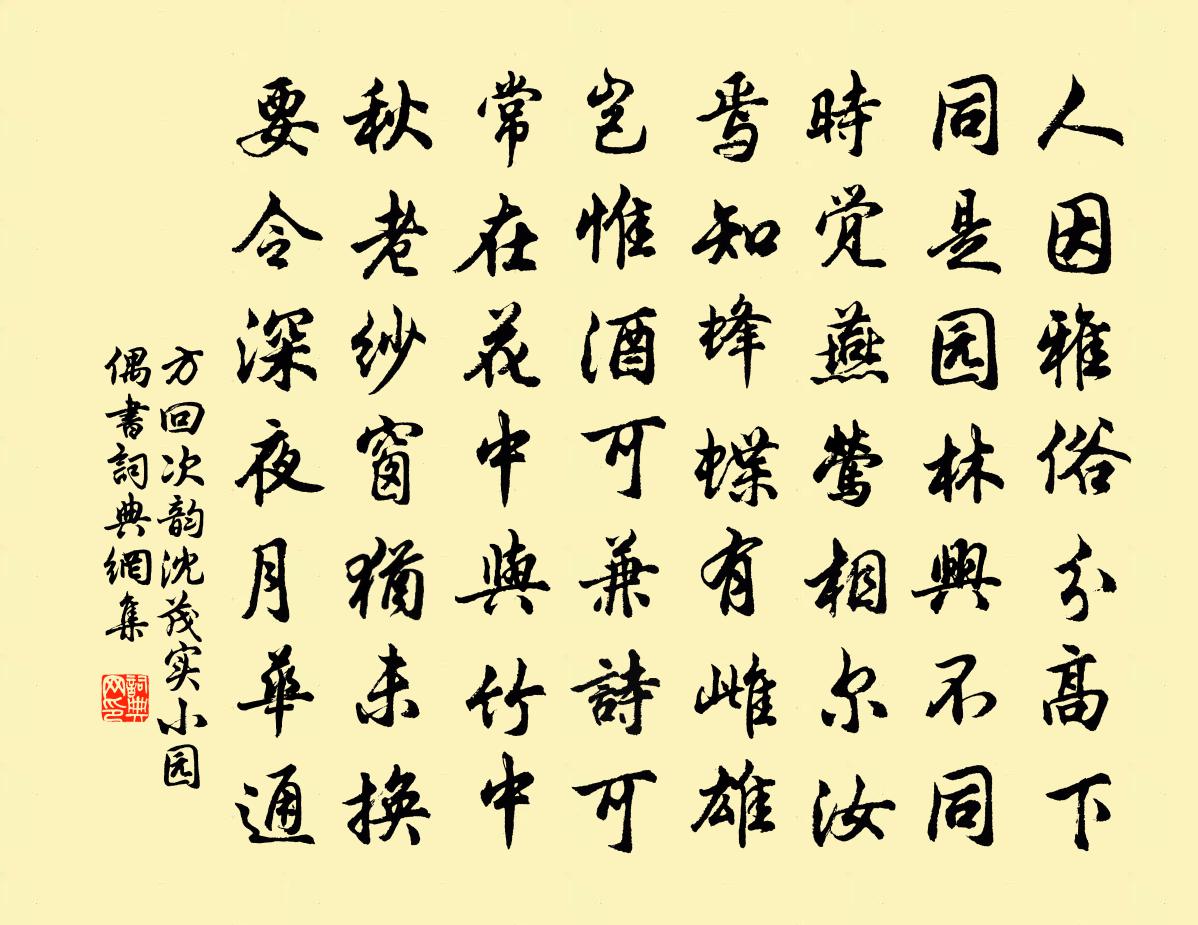 人因雅俗分高下
同是园林興不同
時覚燕鶯相尔汝
焉知蜂蝶有雌雄
岂惟酒可兼詩可
常在花中與竹中
秋老纱窗猶未换
要令深夜月华通
方回次韵沈茂实小园
偶書詞典網集
詞典网印